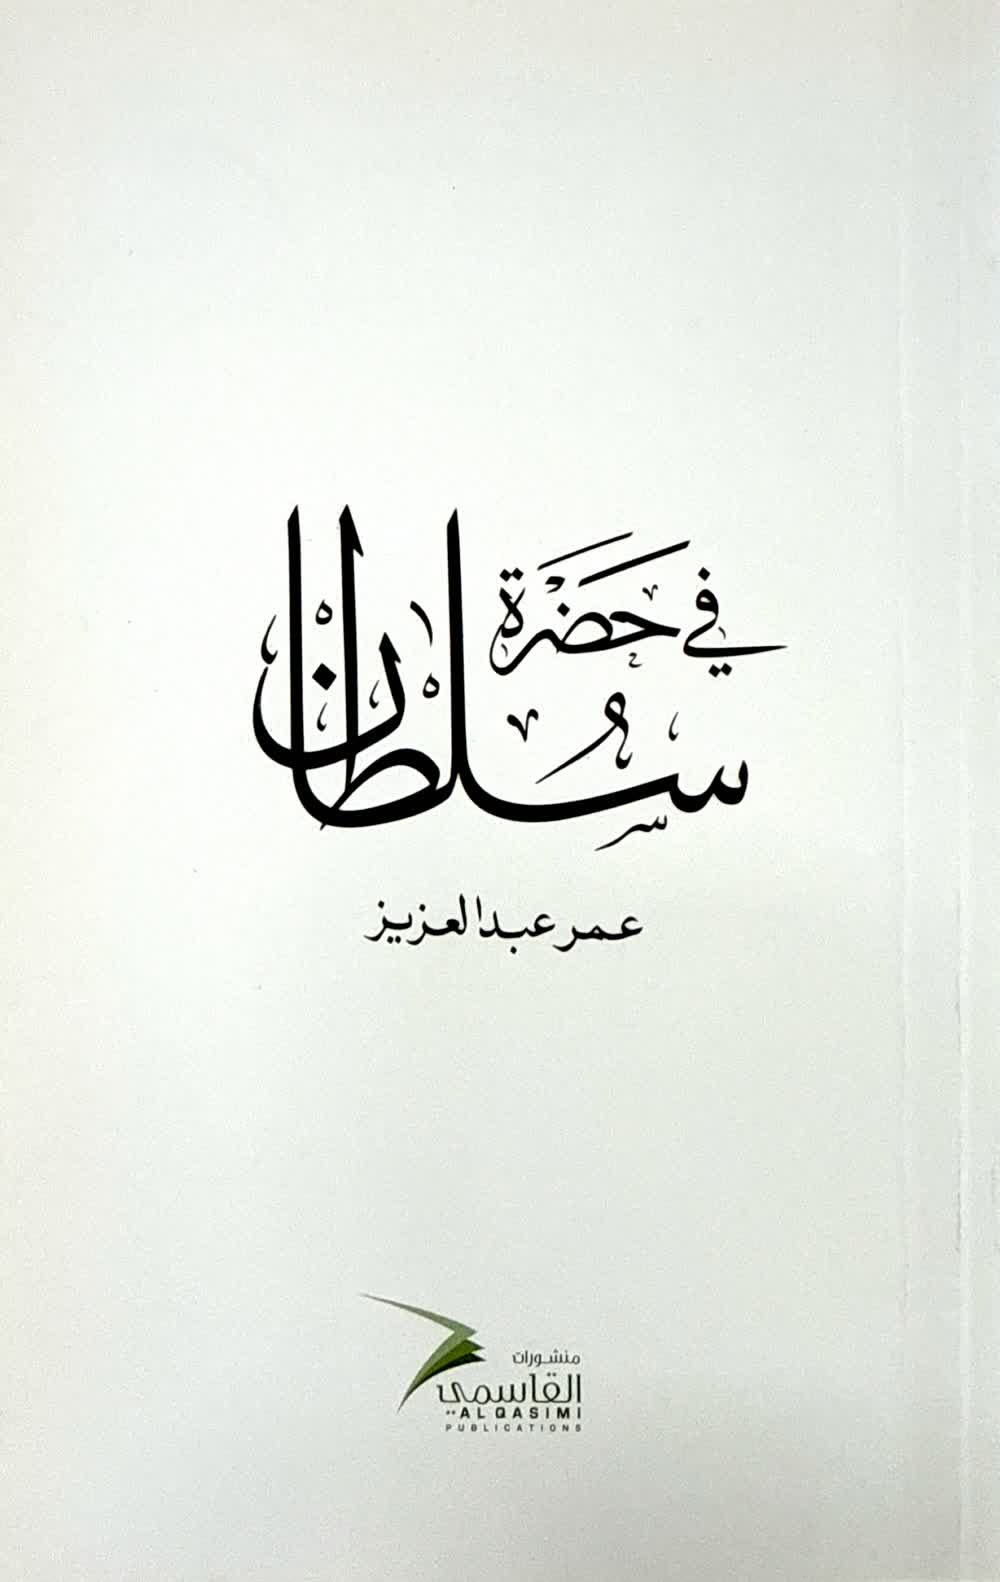 في حَضْرَة
سُلْطَان
عمر عبدالعزيز
منشورات
القاسمي
AL QASIMI
PUBLICATIONS